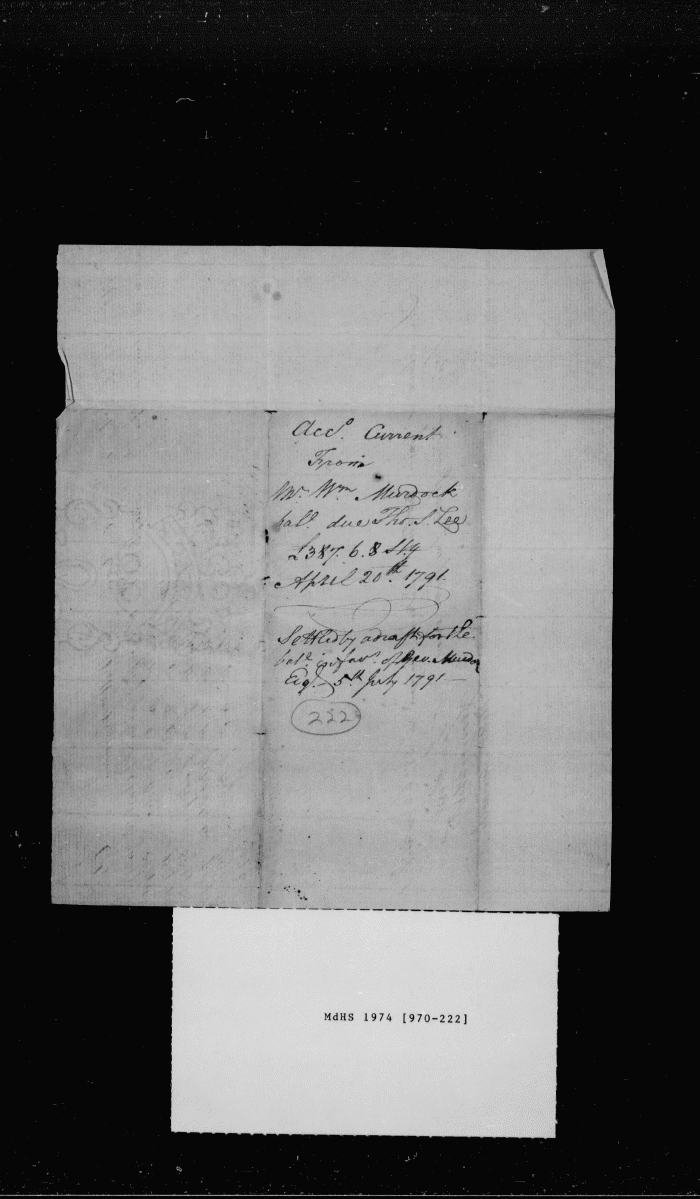 Acct. Current
From
Mr. Wm. Murdock
ball. due Tho. S. Lee
£387.6.8 Stg
April 20th. 1791
Settled by a draft for the
bale. in favr. of Geo. Murdo
Esqr. 5th July 1791
222
MdHS 1974 [970-222]